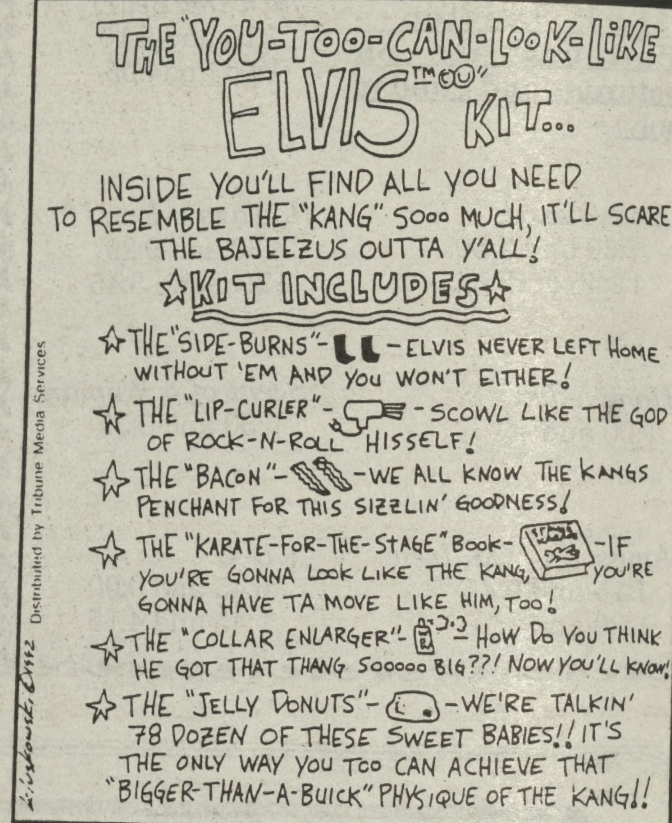 THE "YOU-TOO-CAN-LOOK-LIKE
ELVIS™" KIT...
INSIDE YOU'LL FIND ALL YOU NEED
TO RESEMBLE THE "KANG" SOOO MUCH, IT'LL SCARE
THE BAJEEZUS OUTTA Y'ALL!
☆KIT INCLUDES☆
☆ THE "SIDE-BURNS"- - ELVIS NEVER LEFT HOME
WITHOUT 'EM AND YOU WON'T EITHER!
☆ THE "LIP-CURLER"- - SCOWL LIKE THE GOD
OF ROCK-N-ROLL HISSELF!
☆ THE "BACON"- - WE ALL KNOW THE KANGS
PENCHANT FOR THIS SIZZLIN' GOODNESS!
☆ THE "KARATE-FOR-THE-STAGE" BOOK- - IF
YOU'RE GONNA LOOK LIKE THE KANG, YOU'RE
GONNA HAVE TA MOVE LIKE HIM, TOO!
☆ THE "COLLAR ENLARGER"- - HOW DO YOU THINK
HE GOT THAT THANG SOOOOO BIG??! NOW YOU'LL KNOW!
☆ THE "JELLY DONUTS"- - WE'RE TALKIN'
78 DOZEN OF THESE SWEET BABIES!! IT'S
THE ONLY WAY YOU TOO CAN ACHIEVE THAT
"BIGGER-THAN-A-BUICK" PHYSIQUE OF THE KANG!!
©1992 Distributed by Tribune Media Services